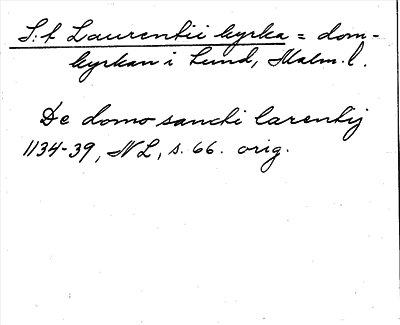 S:t Laurentii kyrka = dom-
kyrkan i Lund, Malm. l.
De domo sancti larentij
1134-39, NL, s. 66. orig.